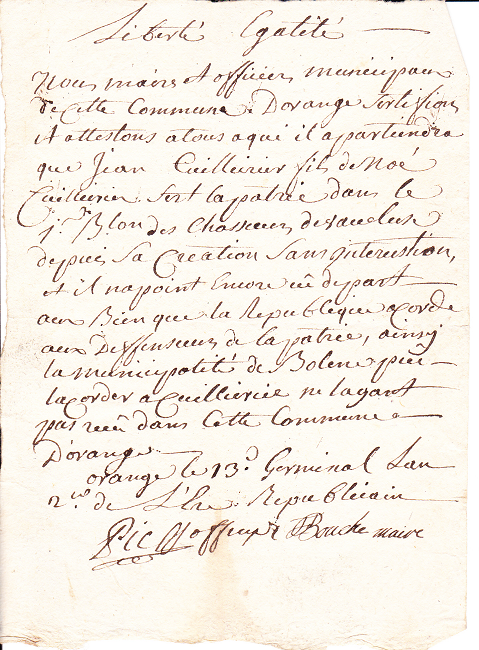 Liberté Egalité
Nous maire et officiers municipaux
de Cette Commune D'orange Sertifions
et attestons atous aqui il apartiendra
que Jean Cuillierier fils de Noé
Cuillierier Sert lapatrie dans le
1.r Blon des Chasseurs devaucluse
depuis Sa Creation Sans interution,
et il napoint Encore eû depart
aux Bien que la Republique acorde
aux Deffenseurs de la patrie, ainsy
la municipalité de Bolene peût
lacorder a Cuillierier ne layant
pas reçû dans Cette Commune
D'orange
orange le 13.e Germinal Lan
2.me de L'Ere Republicain
Pic offmpr Bouche maire